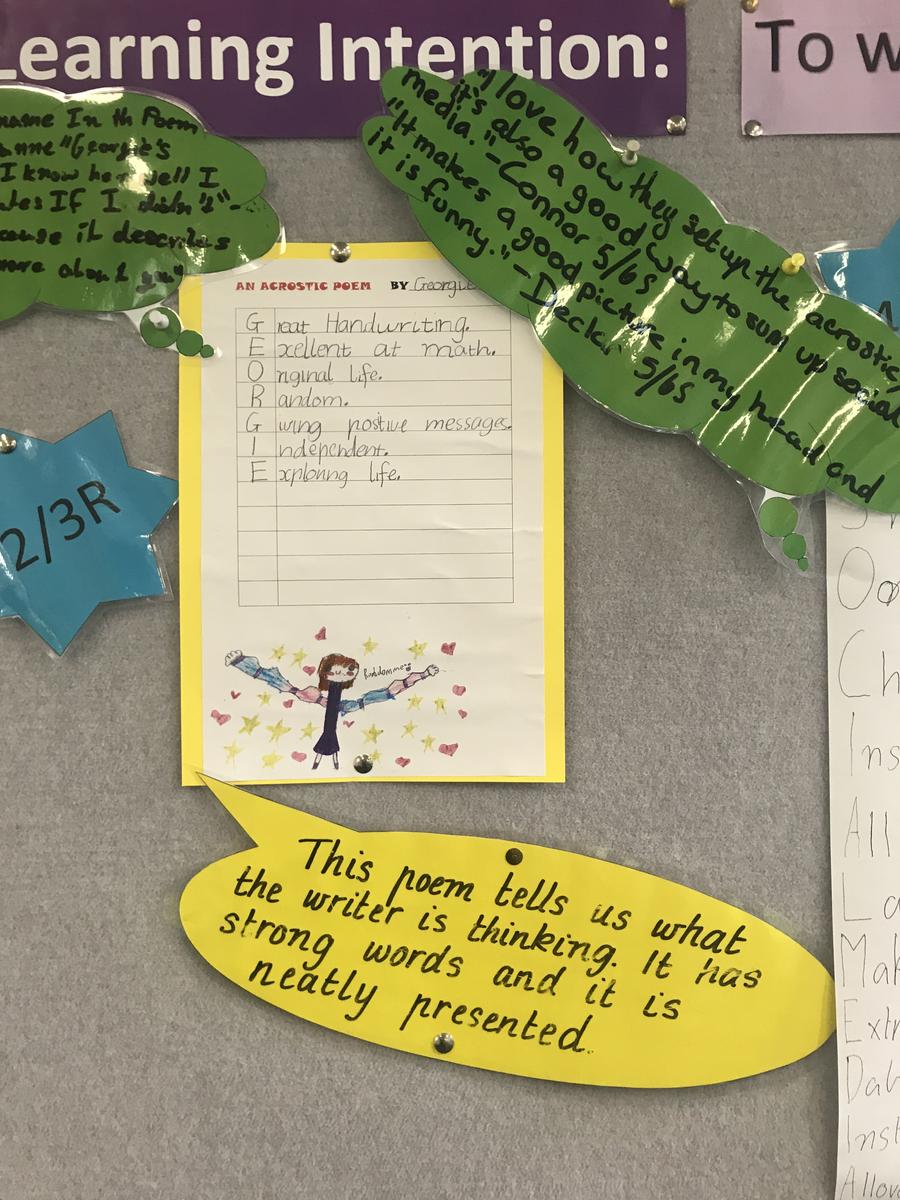 Learning Intention:
To w
name In th Poem
I know her well I
If I didn't"-
cause it describes
more about you"
"I love how they set up the acrostic,
it's also a good way to sum up social
media." -Connor 5/6S
"It makes a good picture in my head and
it is funny." - Deck. 5/6S
AN ACROSTIC POEM BY Georgie
Great Handwriting.
Exellent at math.
Original life.
Random.
Giving postive messages.
Independent.
Exploring life.
2/3R
This poem tells us what
the writer is thinking. It has
strong words and it is
neatly presented.
Ch
Ins
All
La
Mak
Extr
Dab
Inst
Allow